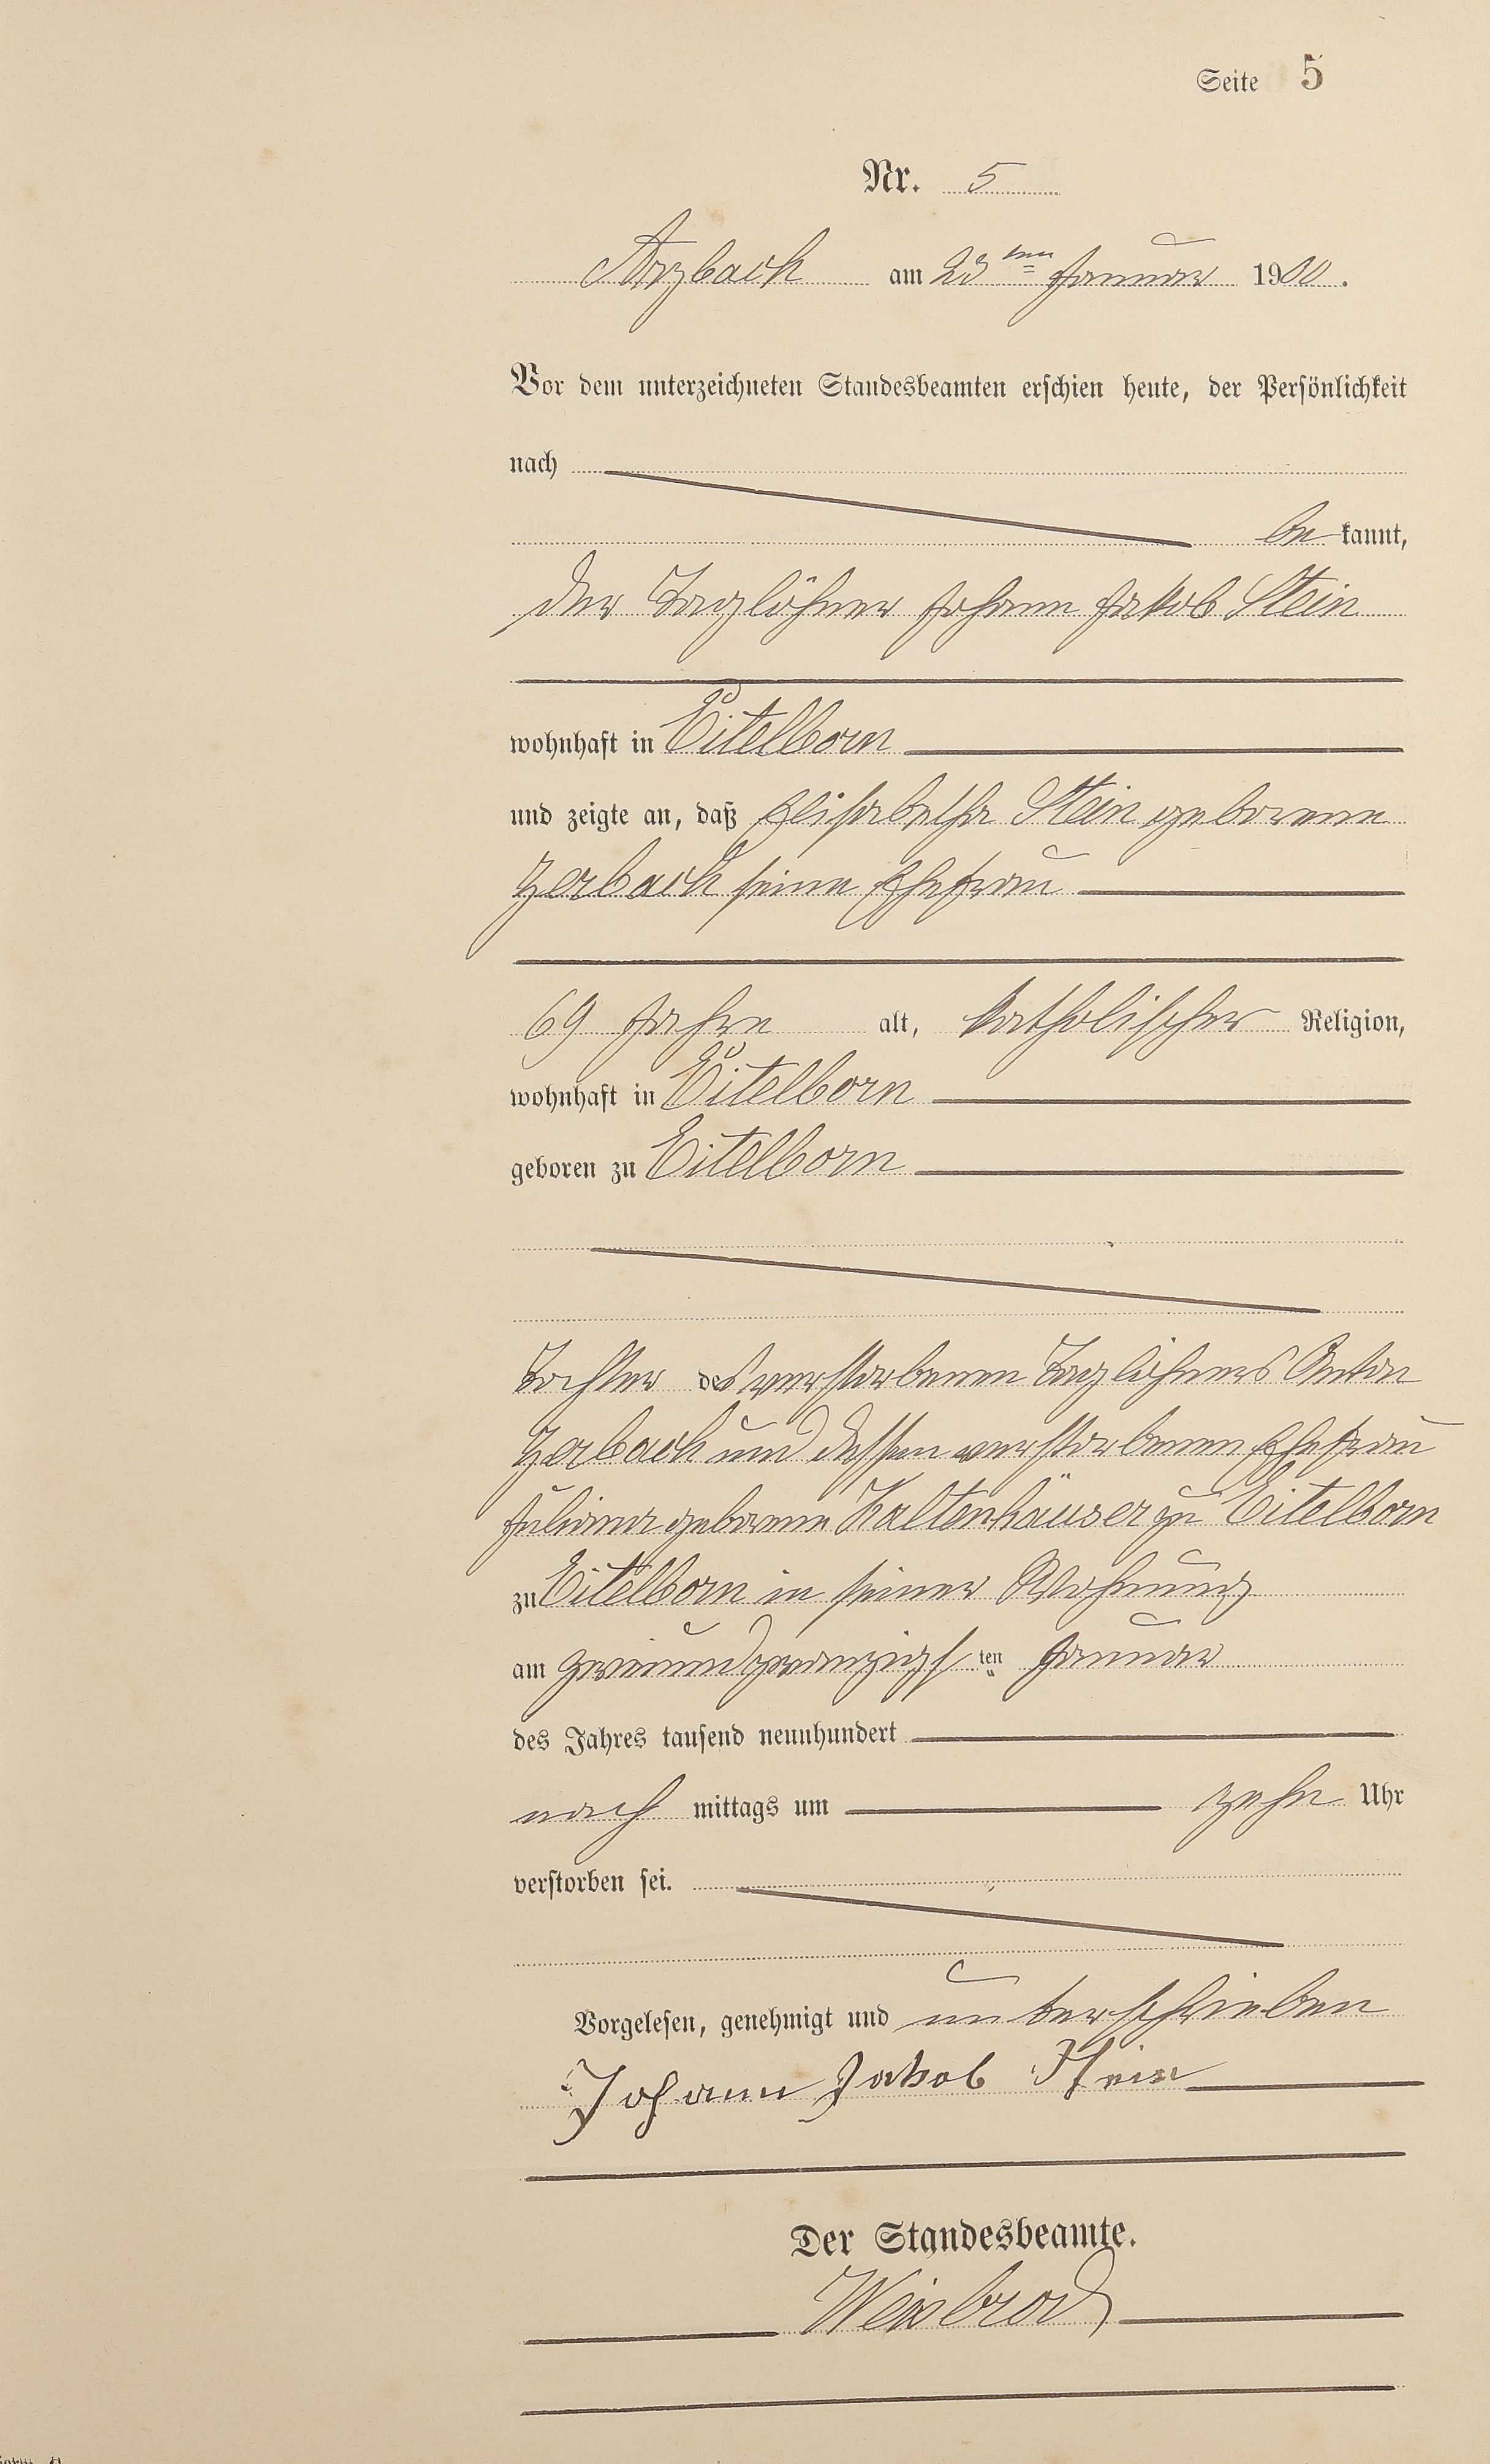 Seite 5
Nr. 5
Arzbach am 23ten Januar 1900.
Vor dem unterzeichneten Standesbeamten erschien heute, der Persönlichkeit
nach
be kannt,
der Taglöhner Johann Jakob Stein
wohnhaft in Eitelborn
und zeigte an, daß Elisabetha Stein geborene
Zerbach seine Ehefrau
69 Jahre alt, katholischer Religion,
wohnhaft in Eitelborn
geboren zu Eitelborn
Tochter des verstorbenen Taglöhners Anton
Zerbach und dessen verstorbenen Ehefrau
Juliana geborene Kaltenhäuser zu Eitelborn
zu Eitelborn in seiner Wohnung
am zweiundzwanzigsten Januar
des Jahres tausend neunhundert
nach mittags um zehn Uhr
verstorben sei.
Vorgelesen, genehmigt und unterschrieben
Johann Jakob Stein
Der Standesbeamte.
Weisbrod